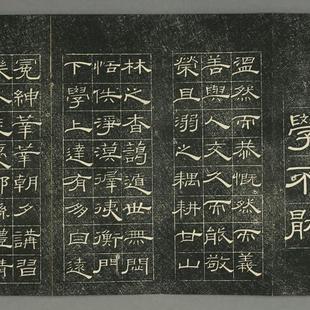 學不厭
溫然而恭慨然而義
善與人交久而能敬
榮且溺之耦耕甘山
林之杳藹遁世無悶
恬佚淨漠徲徥衡門
下學上達有朋自遠
冕紳莘莘朝夕講習